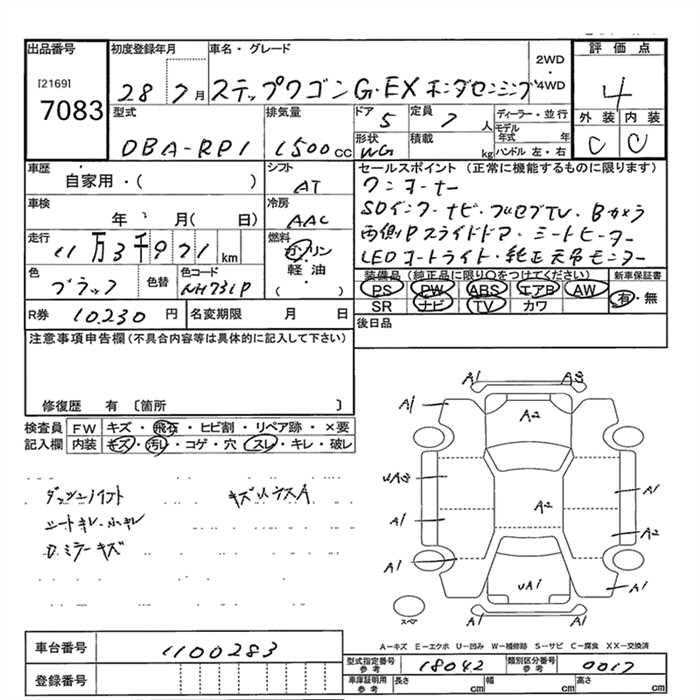 出品番号 初度登録年月 車名・グレード 2WD 評価点
[2169] 7083 28 7月 ステップワゴンG・EX ホンダセンシング 4WD 4
型式 排気量 ドア 5 定員 7人 ディーラー・並行 外装 内装
DBA-RP1 1500cc 形状 WG 積載 kg モデル年式 年 C C
ハンドル 左・右
車歴 シフト セールスポイント(正常に機能するものに限ります)
自家用・( ) AT ワンオーナー
車検 冷房 SDインターナビ・フルセグTV・Bカメラ
年 月( 日) AAC 両側Pスライドドア・シートヒーター
走行 燃料 LEDオートライト・純正天吊モニター
11万3千971km ガソリン
軽油
( )
色 色替 色コード 装備品(純正品に限り○をつけてください) 新車保証書
ブラック NH731P PS PW ABS エアB AW 有・無
SR ナビ TV カワ
R券 10230円 名変期限 月 日 後日品
注意事項申告欄(不具合内容等は具体的に記入して下さい)
修復歴 有 〔箇所 〕
検査員 FW キズ・飛石・ヒビ割・リペア跡・×要
記入欄 内装 キズ・汚レ・コゲ・穴・スレ・キレ・破レ
シートキレ・小キレ
D.ミラーキズ
A1 A3
A1 A2
A1
A2 A1
A1 A2
A1
UA1 A1
A1 A1
スペア
A-キズ E-エクボ U-凹み W-補修跡 S-サビ C-腐食 XX-交換済
車台番号 1100283
型式指定番号 参考 18042 類別区分番号 参考 0017
登録番号 車庫証明用 参考 長さ cm 幅 cm 高さ cm